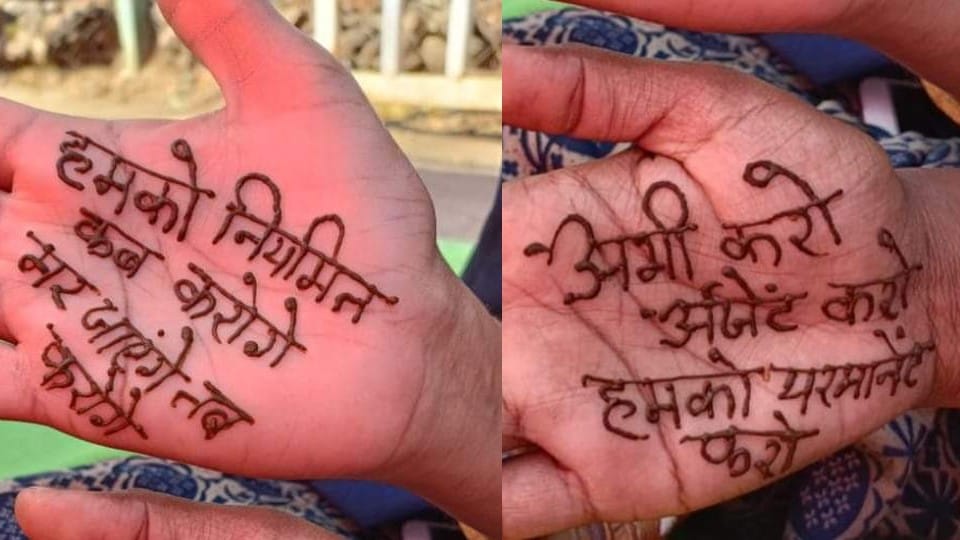 हमको नियमित
कब करोगे
मर जाएंगे तब
करोगे
अभी करो
अर्जेंट करो
हमको परमानेंट
करो